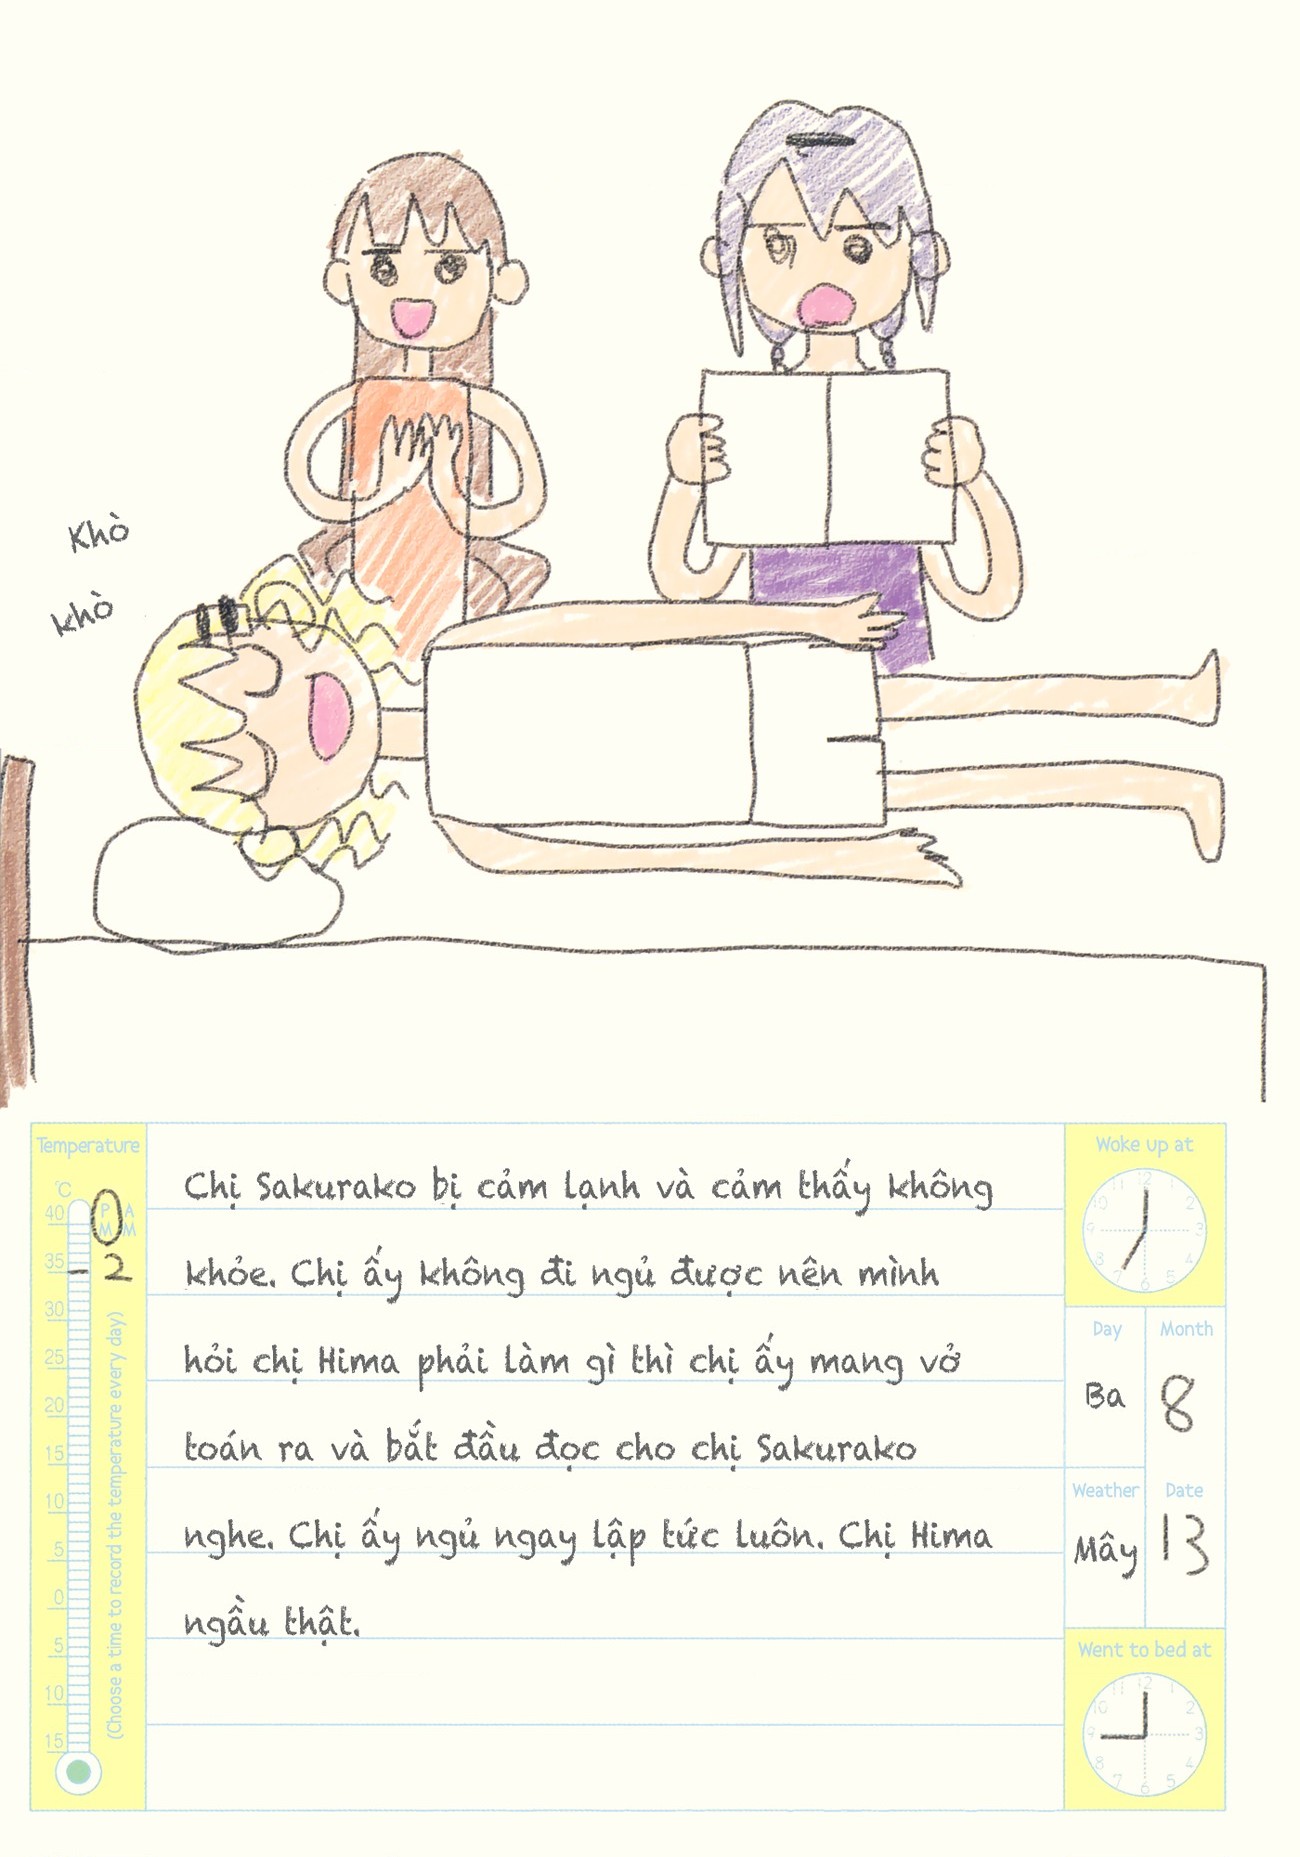 Khò
khò
Temperature
°C
40
35
30
25
20
15
10
5
0
5
10
15
P M
A M
2
(Choose a time to record the temperature every day)
Chị Sakurako bị cảm lạnh và cảm thấy không
khỏe. Chị ấy không đi ngủ được nên mình
hỏi chị Hima phải làm gì thì chị ấy mang vở
toán ra và bắt đầu đọc cho chị Sakurako
nghe. Chị ấy ngủ ngay lập tức luôn. Chị Hima
ngầu thật.
Woke up at
12
1
2
3
4
5
6
7
8
9
10
11
Day
Month
Ba
8
Weather
Date
Mây
13
Went to bed at
12
1
2
3
4
5
6
7
8
9
10
11